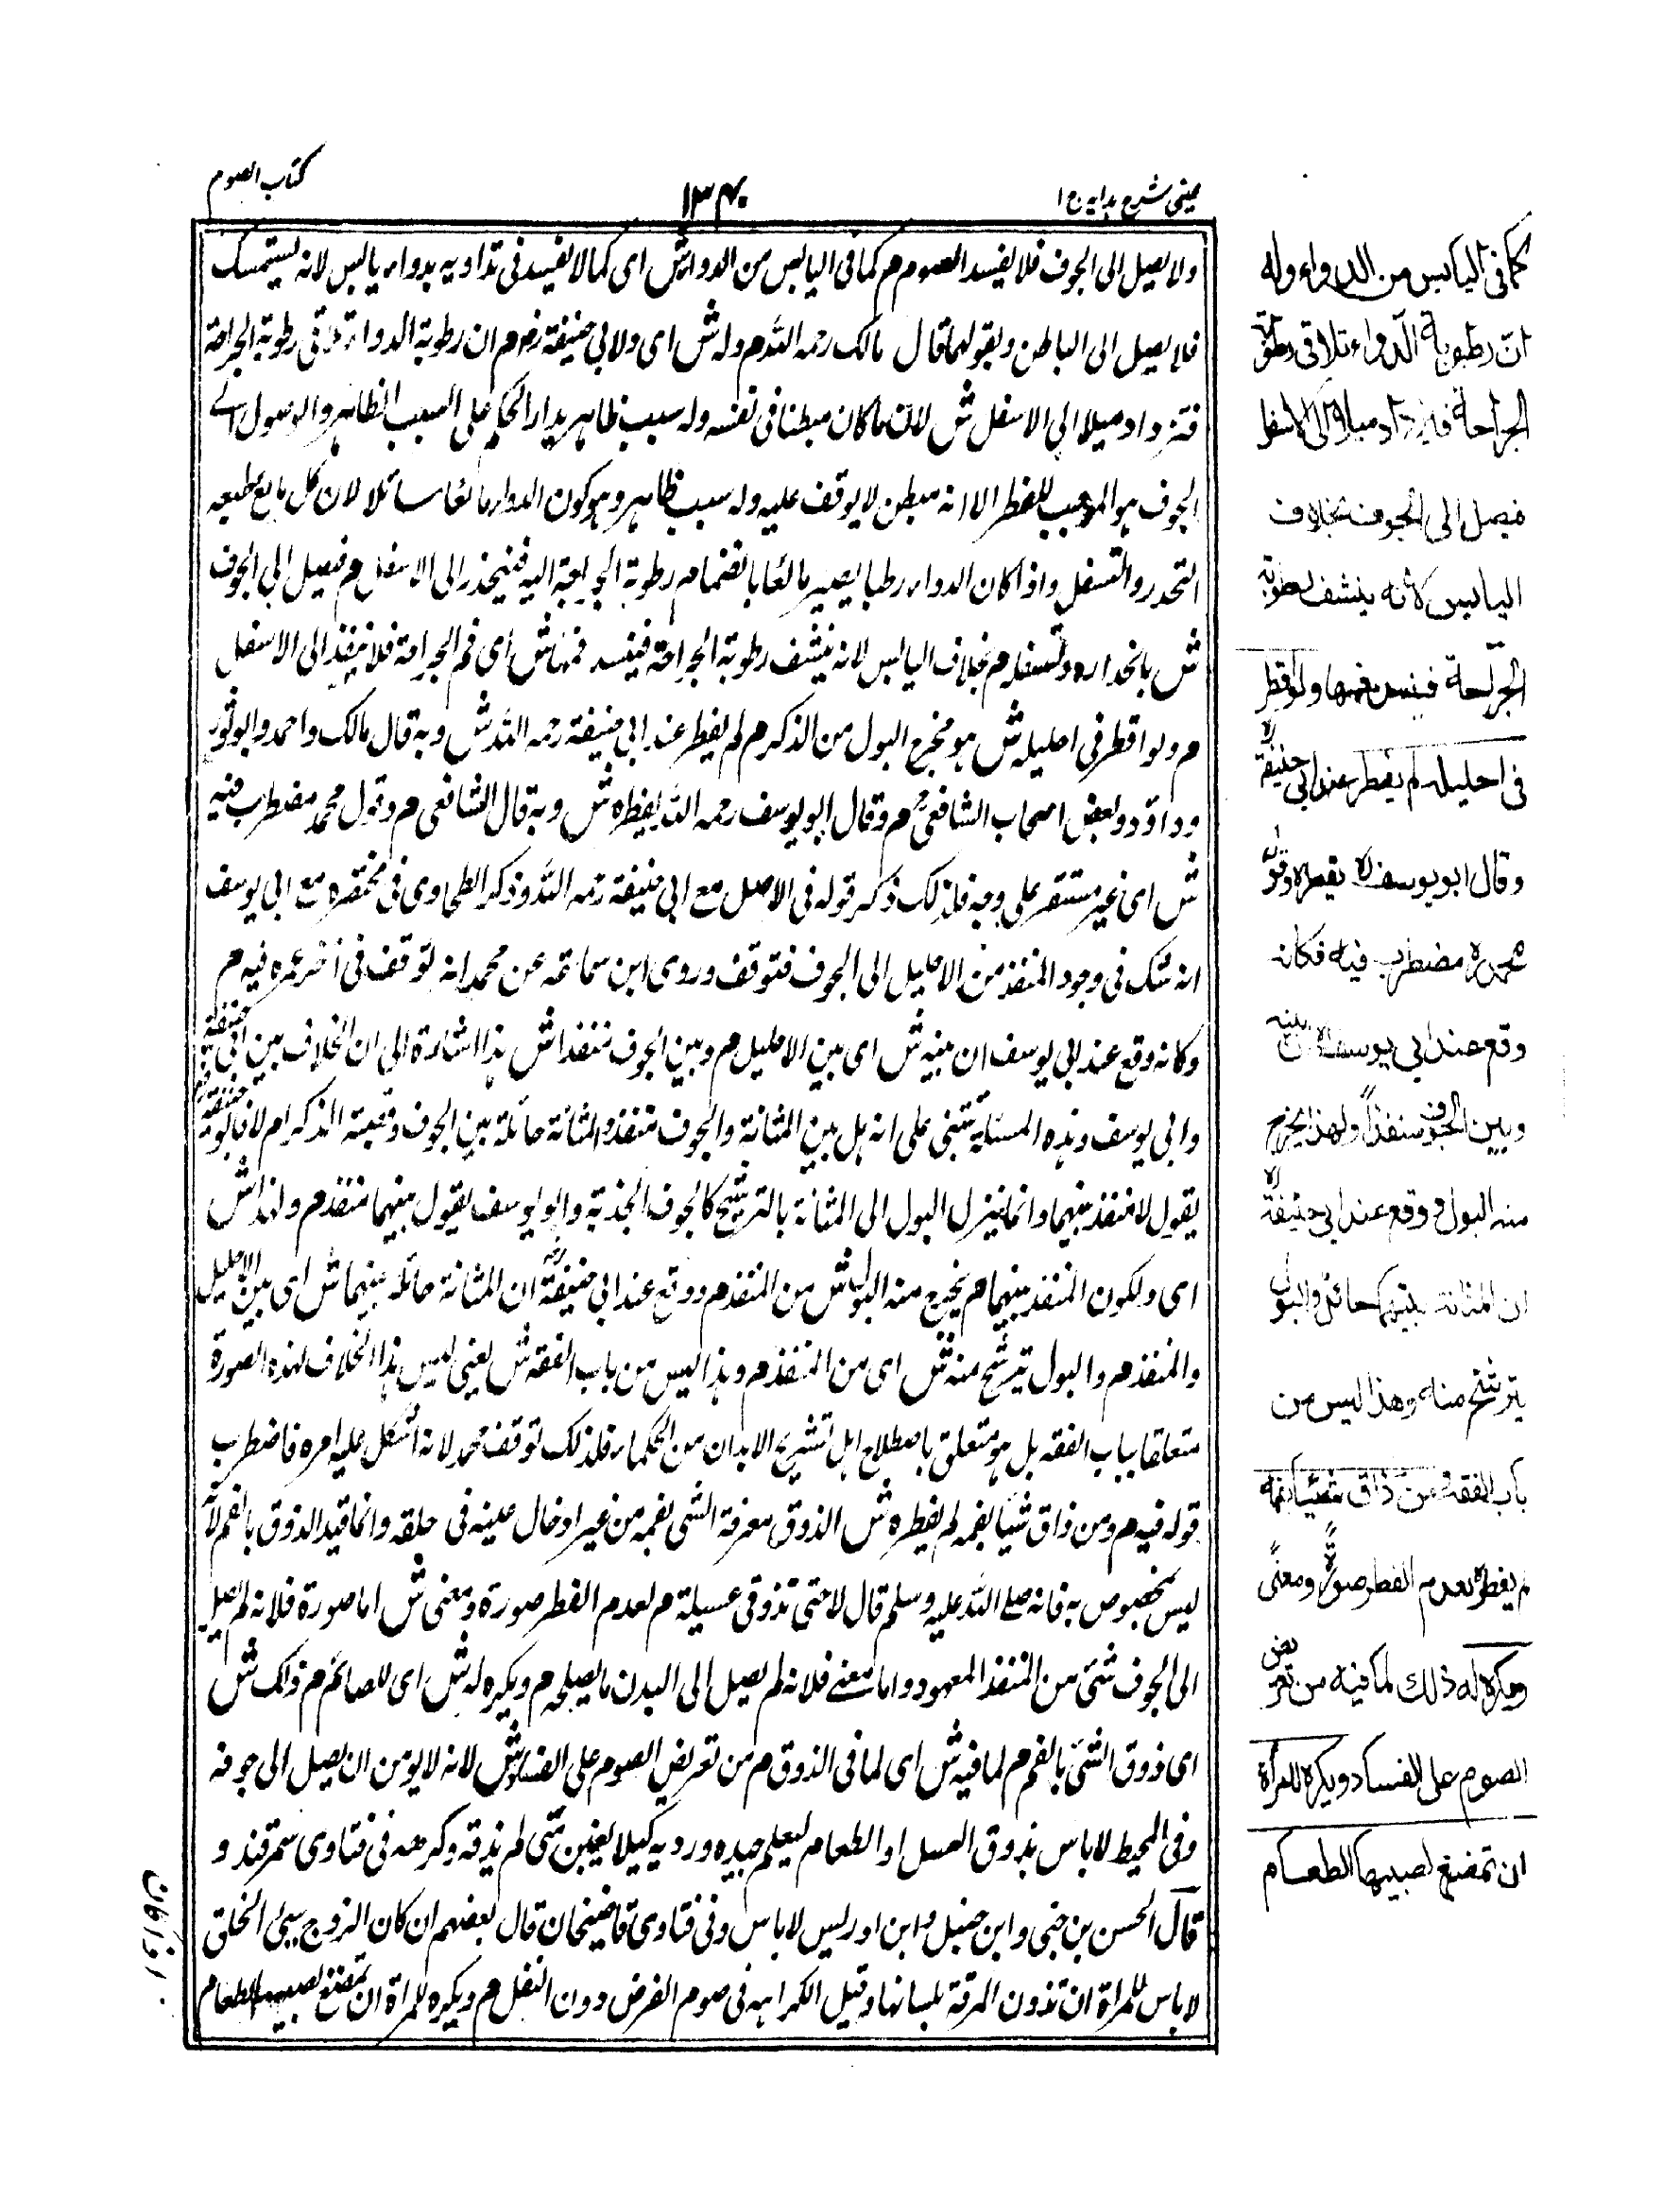 عینی شرح ہدایہ ج ۱
۱۳۴۰
کتاب الصوم
ولا یصل الی الجوف فلا یفسد الصوم م کما فی الیابس من الدواء ش ای کما لا یفسد فی تداویه بدواء یابس لانه یستمسک
فلا یصل الی الباطن وبقولهما قال مالک رحمه الله م وله ش ای ولابی حنیفة رح م ان رطوبة الدواء تلاقی رطوبة الجراحة
فتزداد میلا الی الاسفل ش لان ما کان مبطنا فی نفسه وله سبب ظاهر یدار الحکم علی السبب الظاهر والوصول الے
الجوف هو الموجب للفطر الا انه مبطن لا یوقف علیه وله سبب ظاهر وهو کون الدواء مائعا سائلا لان کل مایع طبعه
التحدر والتسفل واذا کان الدواء رطبا یصیر مائعا بانضمام رطوبة الجراحة الیه فینحدر الی الاسفل م فیصل الی الجوف
ش بانحداره وتسفله م بخلاف الیابس لانه ینشف رطوبة الجراحة فینسد فمها ش ای فم الجراحة فلا ینفذ الی الاسفل
م ولو اقطر فی احلیله ش هو مخرج البول من الذکر م لم یفطر عند ابی حنیفة رحمه الله ش وبه قال مالک واحمد وابو ثور
وداؤد وبعض اصحاب الشافعی م وقال ابو یوسف رحمه الله یفطره ش وبه قال الشافعی م وقول محمد مضطرب فیه
ش ای غیر مستقر علی وجه فلذلک ذکر قوله فی الاصل مع ابی حنیفة رحمه الله وذکر الطحاوی فی مختصره مع ابی یوسف
انه شک فی وجود المنفذ من الاحلیل الی الجوف فتوقف وروی ابن سماعة عن محمد انه توقف فی آخر عمره فیه م
وکانه وقع عند ابی یوسف ان بینه ش ای بین الاحلیل م وبین الجوف منفذا ش هذا اشارة الی ان الخلاف بین ابی حنیفة
وابی یوسف وهذه المسئلة تبتنی علی انه هل بین المثانة والجوف منفذ والمثانة حائلة بین الجوف وقصبة الذکر ام لا فابو حنیفة
یقول لا منفذ بینهما وانما ینزل البول الی المثانة بالترشیح کالجوف الجذبة وابو یوسف یقول بینهما منفذ م ولهذا ش
ای ولکون المنفذ بینهما م یخرج منه البول ش من المنفذ م ووقع عند ابی حنیفة ان المثانة حائلة بینهما ش ای بین الاحلیل
والمنفذ م والبول یترشح منه ش ای من المنفذ م وهذا لیس من باب الفقه ش یعنی لیس هذا الخلاف لهذه الصورة
متعلقا بباب الفقه بل هو متعلق باصطلاح اهل تشریح الابدان من الحکماء فلذلک توقف محمد لانه اشکل علیه امره فاضطرب
قوله فیه م ومن ذاق شیئا بفمه لم یفطره ش الذوق معرفة الشی بفمه من غیر ادخال عینه فی حلقه وانما قید الذوق بالفم لانه
لیس بمخصوص به فانه صلے الله علیه وسلم قال لا حتی تذوقی عسیلة م لعدم الفطر صورة ومعنی ش اما صورة فلانه لم یصل
الی الجوف شئ من المنفذ المعهود واما معنے فلانه لم یصل الی البدن ما یصلحه م ویکره له ش ای للصائم م ذلک ش
ای ذوق الشئ بالفم م لما فیه ش ای لما فی الذوق م من تعریض الصوم علی الفساد ش لانه لا یؤمن ان یصل الی جوفه
وفی المحیط لا باس بذوق العسل او الطعام لیعلم جیده وردیه کیلا یغبن متی لم یذقه وکرهه فی فتاوی سمرقند و
قال الحسن بن حیی وابن حنبل وابن ادریس لا باس وفی فتاوی قاضیخان قال بعضهم ان کان الزوج سیئ الخلق
لا باس للمراة ان تذوق المرقة بلسانها وقیل الکراهة فی صوم الفرض دون النفل م ویکره للمراة ان تمضغ لصبیها الطعام
کما فی الیابس من الدواء وله
ان رطوبة الدواء تلاقی رطوبة
الجراحة فیزداد میلا الی الاسفل
فیصل الی الجوف بخلاف
الیابس لانه ینشف رطوبة
الجراحة فینسد فمها ولو اقطر
فی احلیله لم یفطر عند ابی حنیفة رہ
وقال ابو یوسف رہ یفطره وقول
محمد رہ مضطرب فیه فکانه
وقع عند ابی یوسف ان بینه
وبین الجوف منفذا ولهذا یخرج
منه البول و وقع عند ابی حنیفة رہ
ان المثانة بینهما حائل والبول
یترشح منه وهذا لیس من
باب الفقه ومن ذاق شیئا بفمه
لم یفطره لعدم الفطر صورة ومعنی
ویکره له ذلک لما فیه من تعریض
الصوم علی الفساد ویکره للمرأة
ان تمضغ لصبیها الطعام